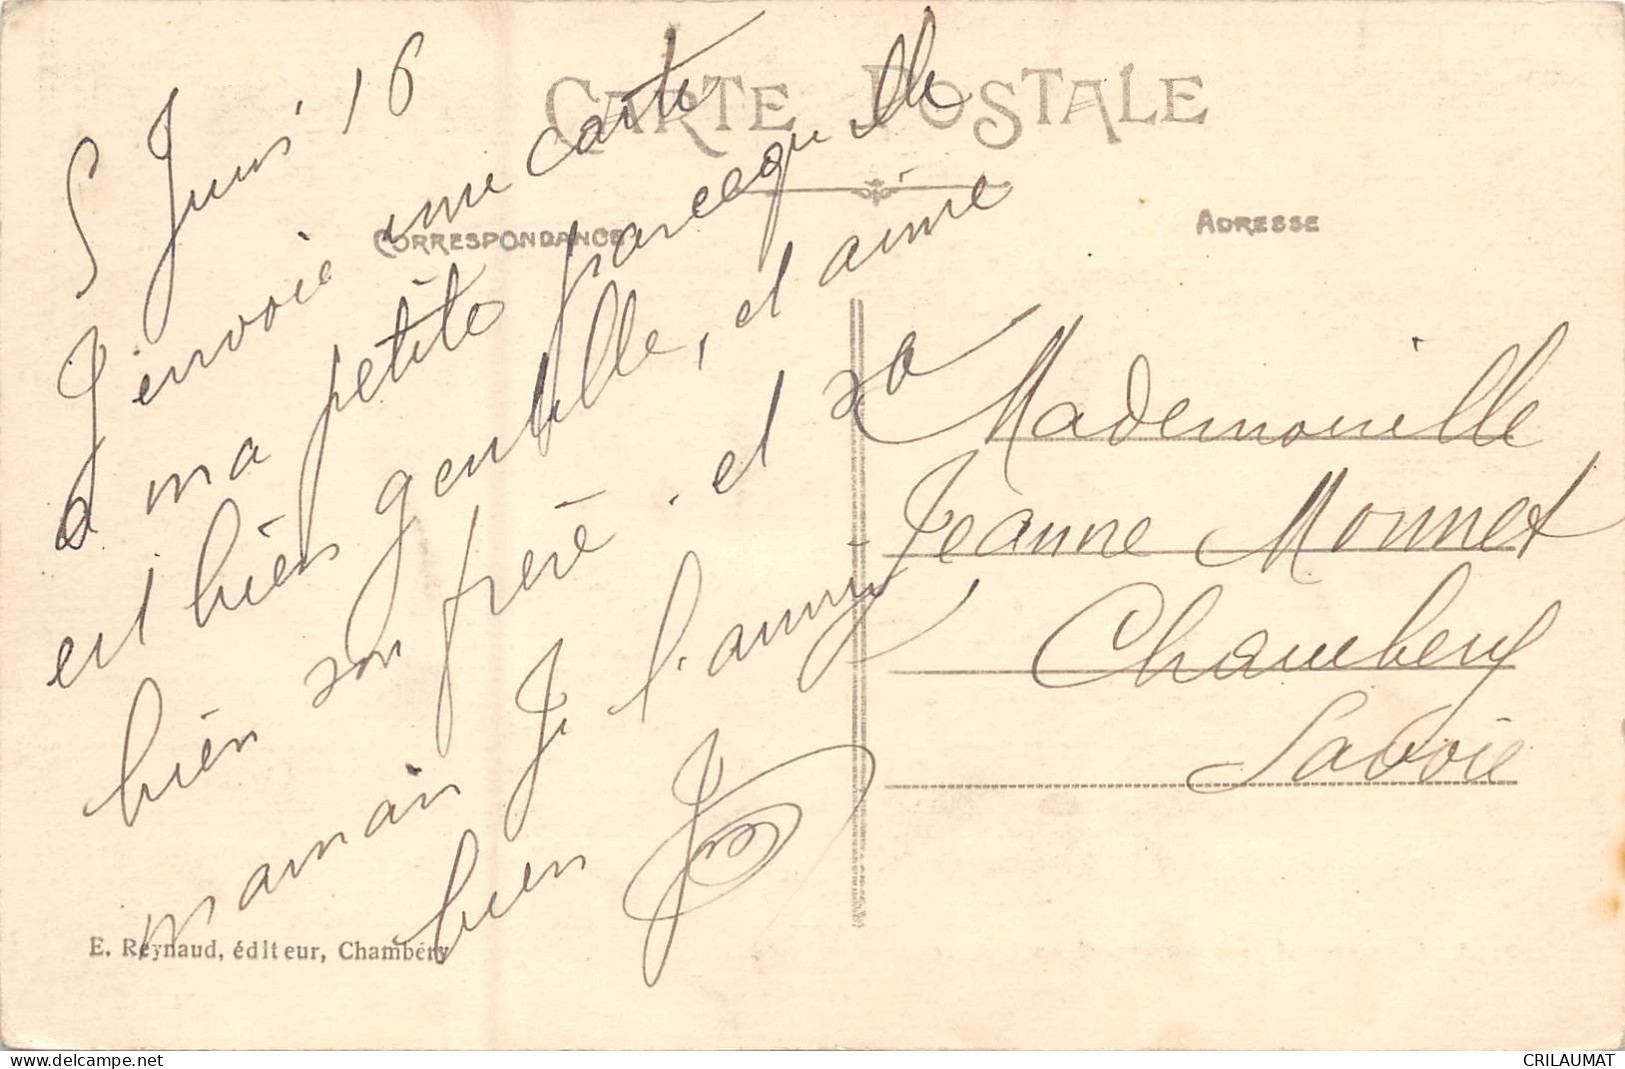 CARTE POSTALE
CORRESPONDANCE
ADRESSE
5 Juin 16
J'envoie une carte
a ma petite parcequ'elle
est bien gentille, et aime
bien son frere. et sa
maman Je l'aime
bien J
Mademoiselle
Jeanne Monnet
Chambery
Savoie
E. Reynaud, éditeur, Chambéry
www.delcampe.net
CRILAUMAT